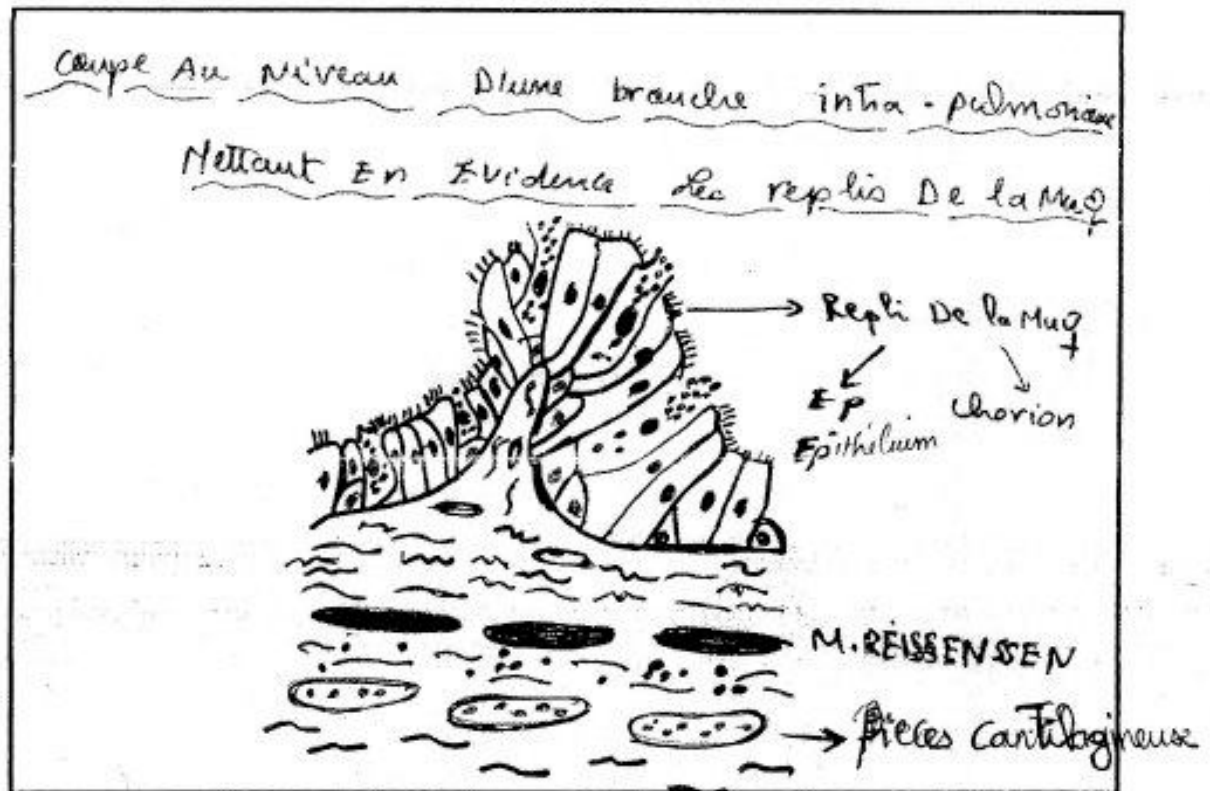 Coupe Au Niveau D'une branche intra-pulmonaire
Mettant En Evidence Les replis De la Muq
Repli De la Muq
Ep Chorion
Epithélium
M. REISSENSSEN
Pièces Cartilagineuse